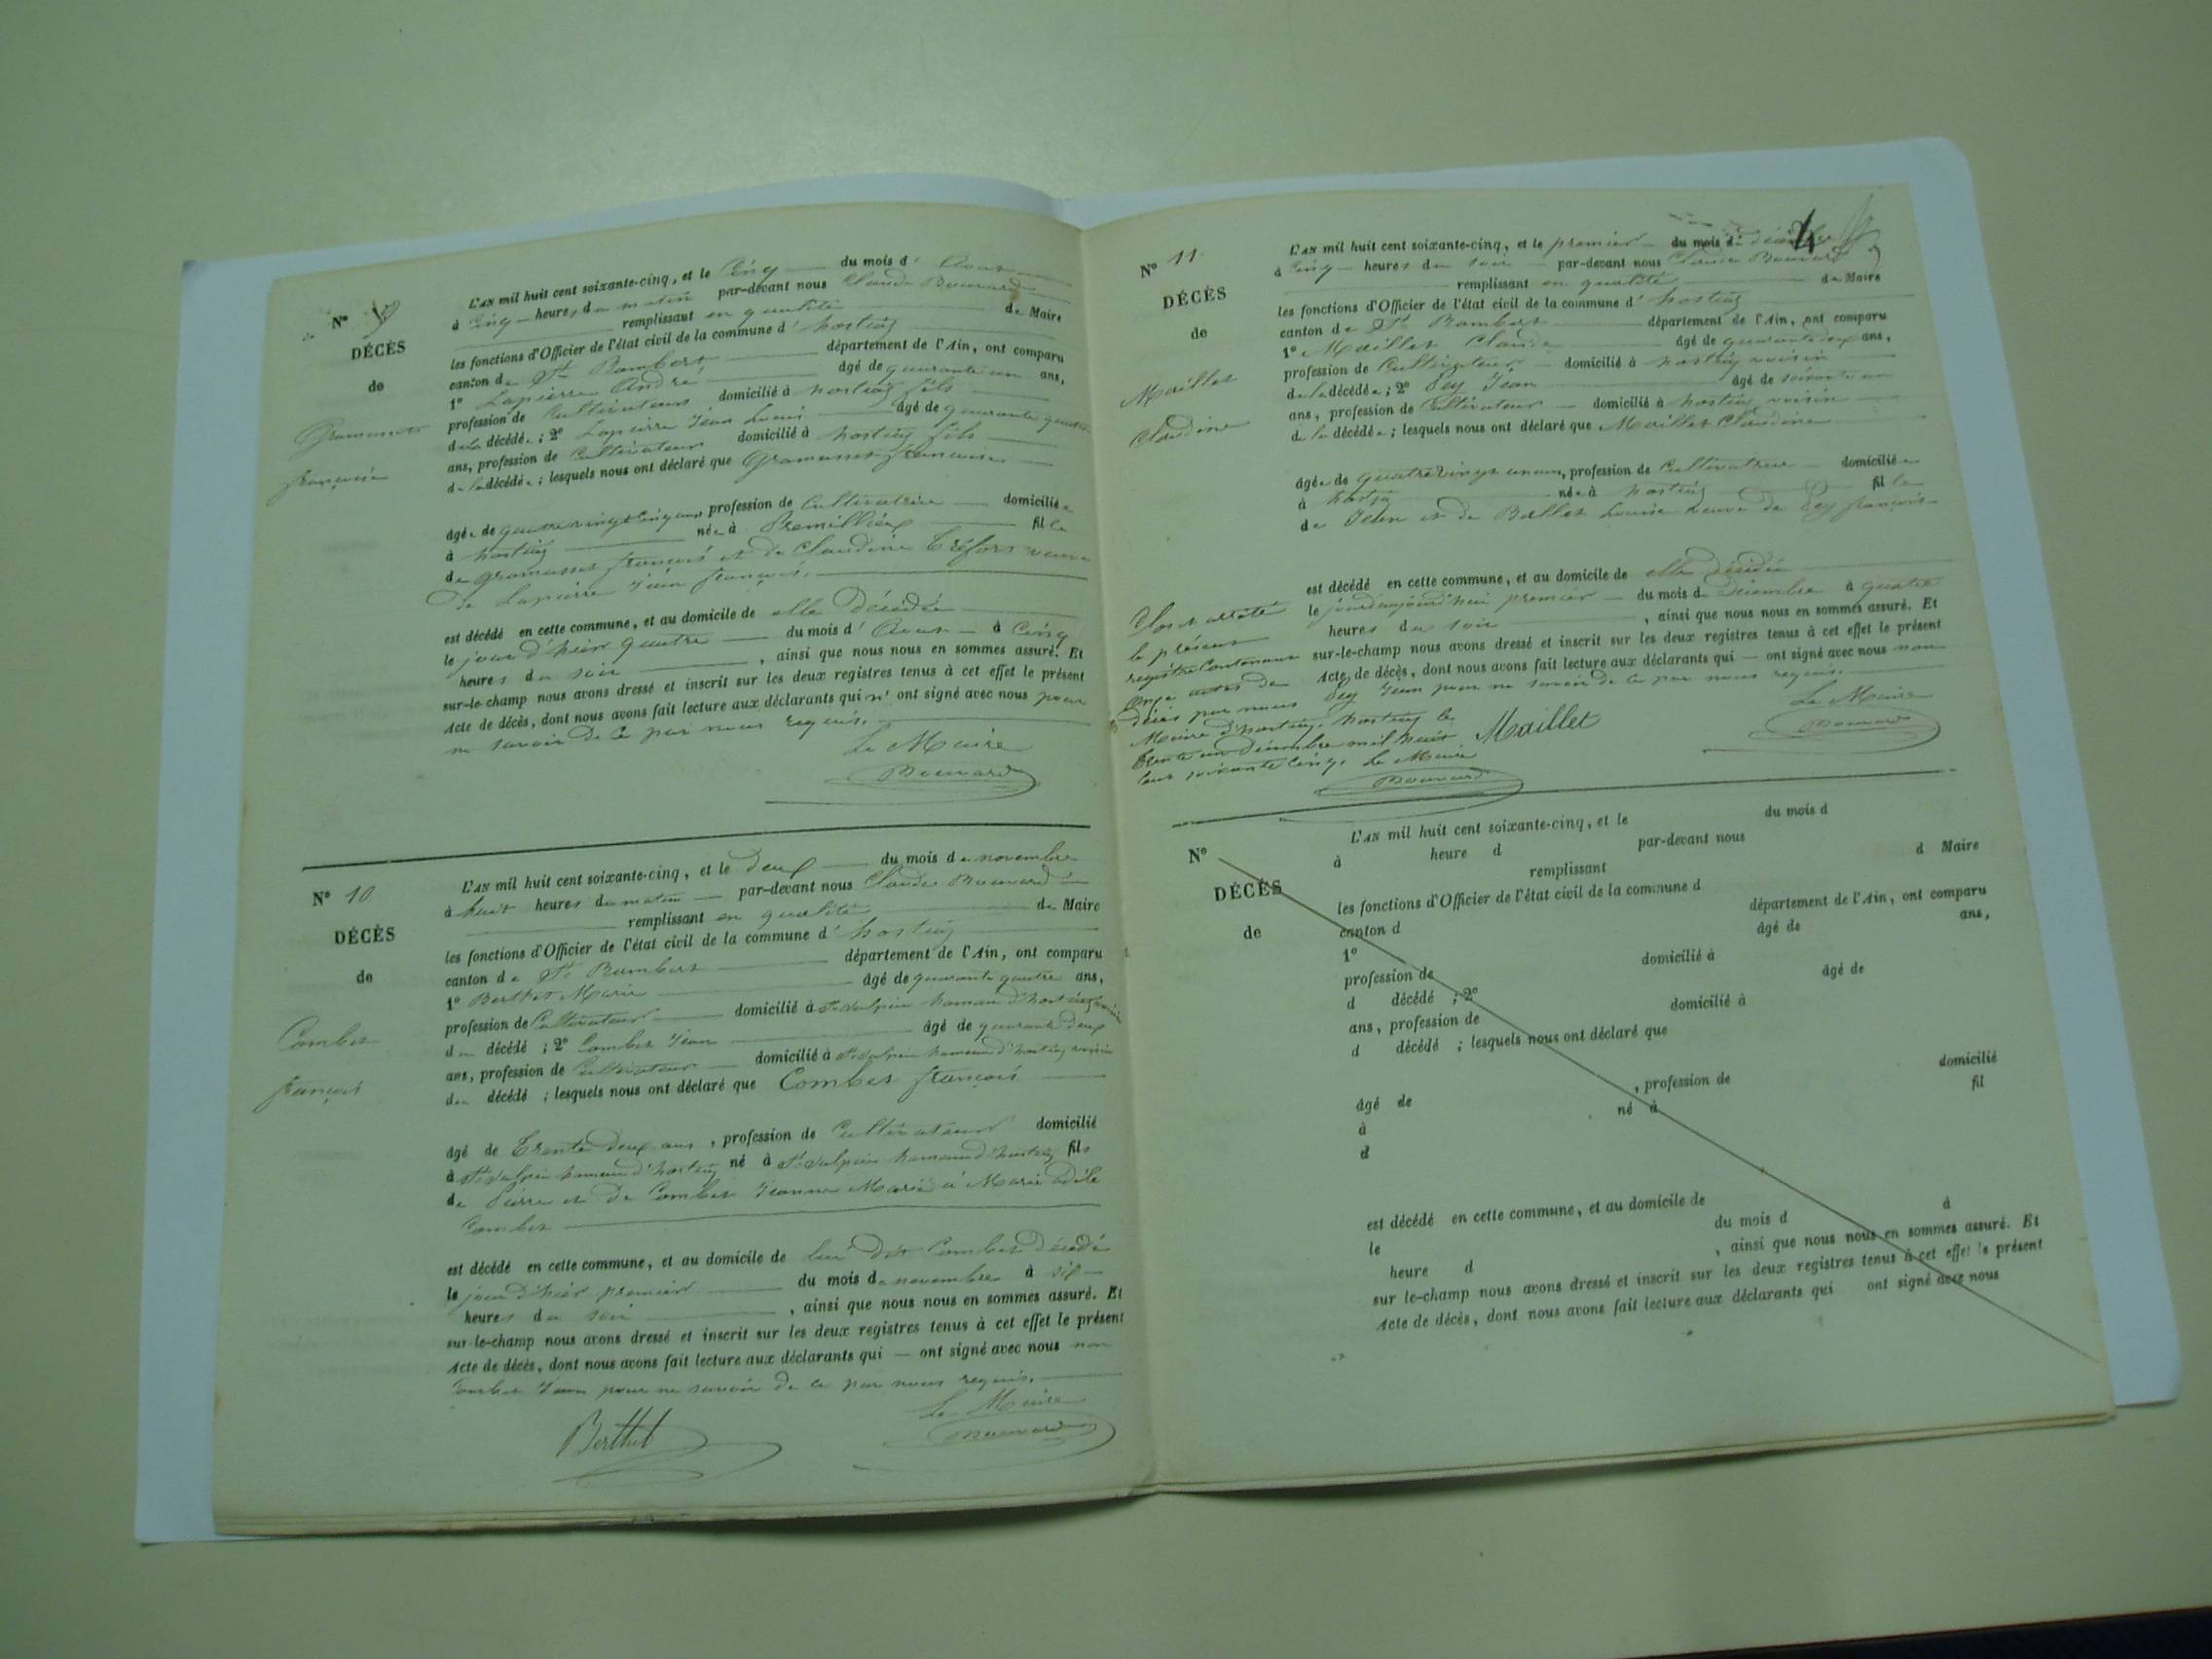 Nº 9
DÉCÈS
de
Gramusset
françoise
L'AN mil huit cent soixante-cinq, et le Cinq du mois d' Aout
à Cinq heures du matin par-devant nous Claude Bouvard
remplissant en qualité de Maire
les fonctions d'Officier de l'état civil de la commune d' hostiaz
canton de St Rambert département de l'Ain, ont comparu
1º Lapierre André âgé de quarante un ans,
profession de Cultivateur domicilié à hostiaz fils
de la décédée ; 2º Lapierre Jean Louis âgé de quarante quatre
ans, profession de Cultivateur domicilié à hostiaz fils
de la décédée ; lesquels nous ont déclaré que Gramusset françoise
âgée de quatre vingt cinq ans, profession de Cultivatrice domiciliée
à hostiaz née à Premillieux fille
de Gramusset françois et de Claudine Tréfort veuve
de Lapierre Jean françois.
est décédé en cette commune, et au domicile de elle décédée
le jour d'hier quatre du mois d' Aout à Cinq
heures du soir , ainsi que nous nous en sommes assuré. Et
sur-le-champ nous avons dressé et inscrit sur les deux registres tenus à cet effet le présent
Acte de décès, dont nous avons fait lecture aux déclarants qui n' ont signé avec nous pour
ne savoir de ce par nous requis.
Le Maire
Bouvard
Nº 10
DÉCÈS
de
Combet
françois
L'AN mil huit cent soixante-cinq, et le deux du mois de novembre
à huit heures du matin par-devant nous Claude Bouvard
remplissant en qualité de Maire
les fonctions d'Officier de l'état civil de la commune d' hostiaz
canton de St Rambert département de l'Ain, ont comparu
1º Berthet Marie âgé de quarante quatre ans,
profession de Cultivateur domicilié à St Sulpice hameau d'hostiaz voisin
du décédé ; 2º Combet Jean âgé de quarante deux
ans, profession de Cultivateur domicilié à St Sulpice hameau d'hostiaz voisin
du décédé ; lesquels nous ont déclaré que Combet françois
âgé de trente deux ans , profession de Cultivateur domicilié
à St Sulpice hameau d'hostiaz né à St Sulpice hameau d'hostiaz fils
de Pierre et de Combet Jeanne Marie à Marie adèle
Combet
est décédé en cette commune, et au domicile de lui dit Combet décédé
le jour d'hier premier du mois de novembre à six
heures du soir , ainsi que nous nous en sommes assuré. Et
sur-le-champ nous avons dressé et inscrit sur les deux registres tenus à cet effet le présent
Acte de décès, dont nous avons fait lecture aux déclarants qui — ont signé avec nous non
Combet Jean pour ne savoir de ce par nous requis.
Le Maire
Berthet Bouvard
4
Nº 11
DÉCÈS
de
Maillet
Claudine
L'AN mil huit cent soixante-cinq, et le premier du mois de décembre
à Cinq heures du soir par-devant nous Claude Bouvard
remplissant en qualité de Maire
les fonctions d'Officier de l'état civil de la commune d' hostiaz
canton de St Rambert département de l'Ain, ont comparu
1º Maillet Claude âgé de quarante deux ans,
profession de Cultivateur domicilié à hostiaz voisin
de la décédée ; 2º Pey Jean âgé de soixante un
ans, profession de Cultivateur domicilié à hostiaz voisin
de la décédée ; lesquels nous ont déclaré que Maillet Claudine
âgée de quatre vingt un ans, profession de Cultivatrice domiciliée
à hostiaz née à hostiaz fille
de Jean et de Ballet Louise veuve de Pey françois
est décédé en cette commune, et au domicile de elle décédée
le jourd'aujourd'hui premier du mois de décembre à quatre
heures du soir , ainsi que nous nous en sommes assuré. Et
sur-le-champ nous avons dressé et inscrit sur les deux registres tenus à cet effet le présent
Acte de décès, dont nous avons fait lecture aux déclarants qui — ont signé avec nous non
Pey Jean pour ne savoir de ce par nous requis.
Le Maire
Maillet Bouvard
Clos et arrêté
le présent
registre Contenant
Onze actes de
décès par nous
Maire d'hostiaz, hostiaz le
trente un décembre mil huit
cent soixante Cinq. Le Maire
Bouvard
Nº
DÉCÈS
de
L'AN mil huit cent soixante-cinq, et le du mois d
à heure d par-devant nous
remplissant d Maire
les fonctions d'Officier de l'état civil de la commune d
canton d département de l'Ain, ont comparu
1º âgé de ans,
profession de domicilié à
d décédé ; 2º âgé de
ans, profession de domicilié à
d décédé ; lesquels nous ont déclaré que
âgé de , profession de domicilié
à né à fil
d
est décédé en cette commune, et au domicile de
le du mois d à
heure d , ainsi que nous nous en sommes assuré. Et
sur le-champ nous avons dressé et inscrit sur les deux registres tenus à cet effet le présent
Acte de décès, dont nous avons fait lecture aux déclarants qui ont signé avec nous